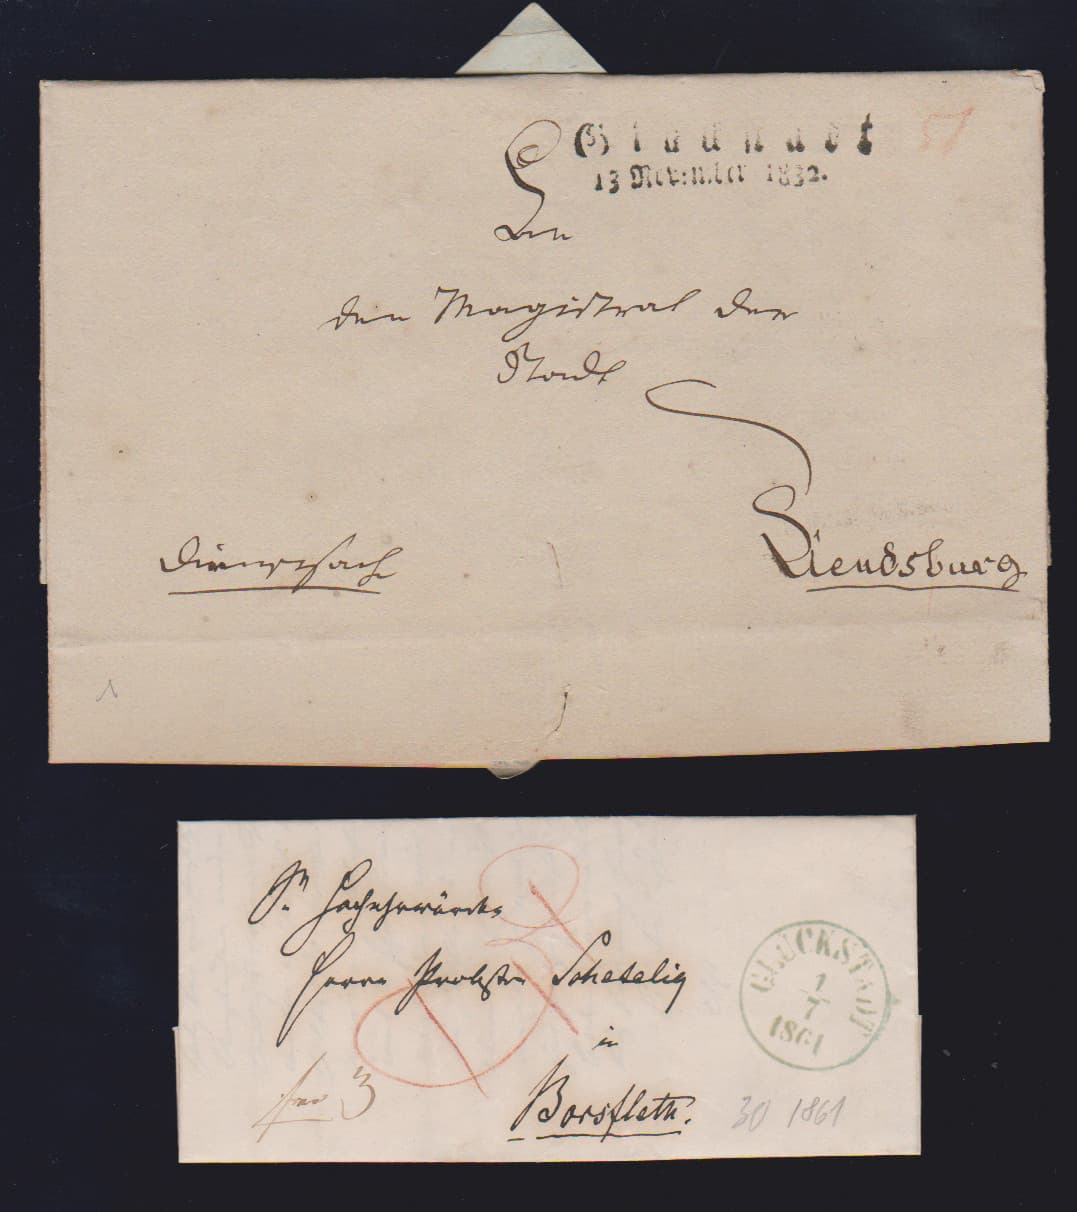 Glückstadt
13 November 1832.
51
An
den Magistrat der
Stadt
Rendsburg
Dienstsache
Sr Hochehrwürden
Herrn Probsten Schetelig
in
Borsfleth.
frco 3
GLÜCKSTADT
1
7
1861
30 1861